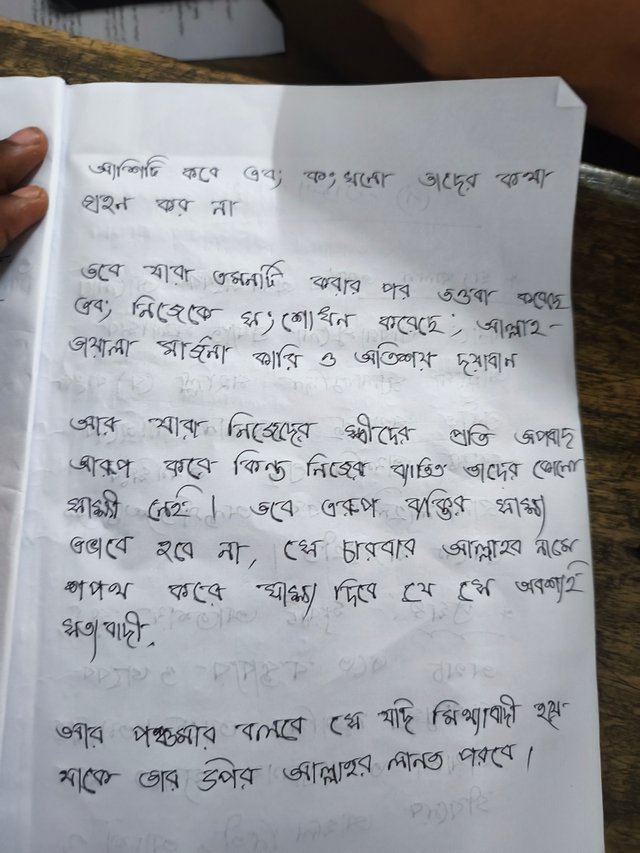 আশিটি করে এবং কংখনো তাদের কথা
গ্রহন কর না
তবে যারা এমনটি করার পর তওবা করেছে
এবং নিজেকে সংশোধন করেছে; আল্লাহ-
তায়ালা মার্জনা কারি ও অতিশয় দয়াবান
আর যারা নিজেদের স্ত্রীদের প্রতি অপবাদ
আরূপ করে কিন্তু নিজের ব্যাতিত তাদের কোনো
সাক্ষী নেই। তবে এরূপ ব্যক্তির সাক্ষ্য
এভাবে হবে না, সে চারবার আল্লাহর নামে
শপথ করে সাক্ষ্য দিবে যে সে অবশ্যই
সত্যবাদী,
আর পঞ্চমার বলবে সে যদি মিথ্যাবাদী হয়ে-
থাকে তার উপর আল্লাহর লানত পরবে।